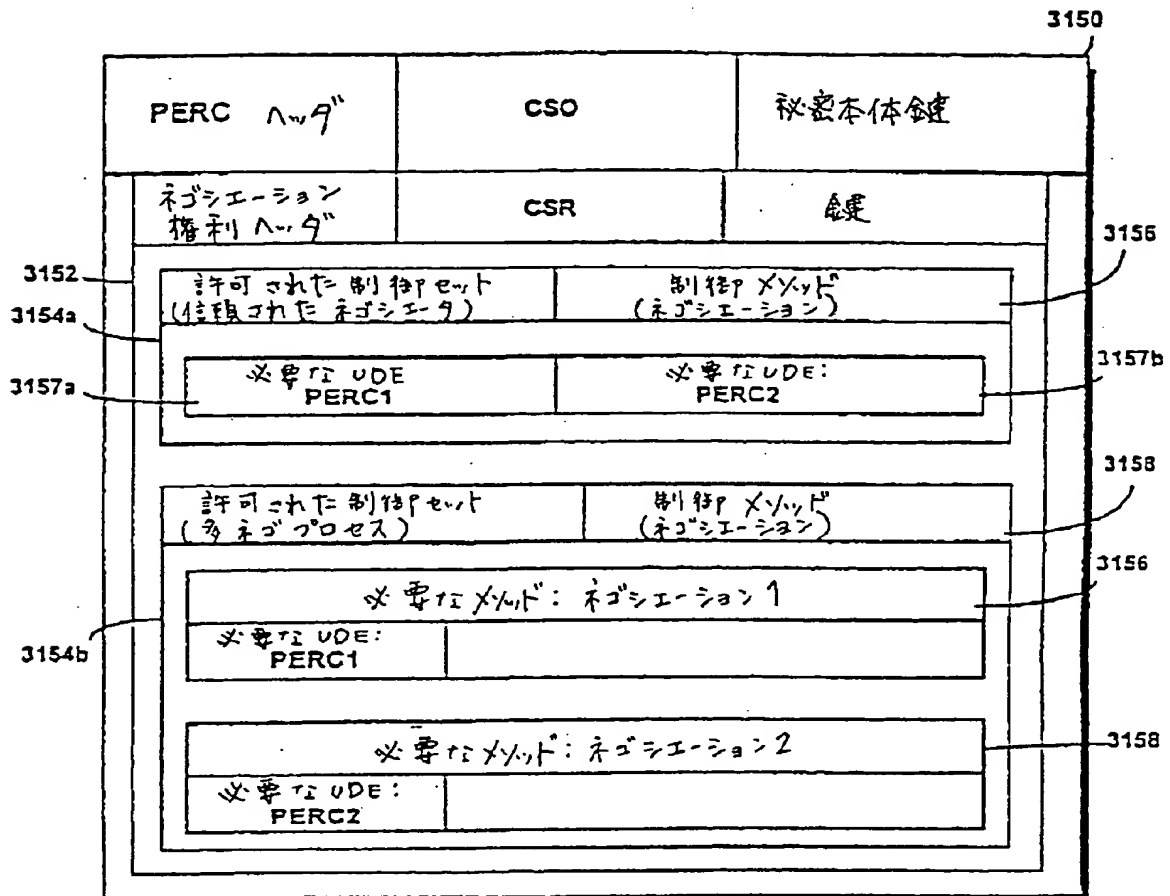 3150
PERC ヘッダ
CS0
秘密本体鍵
ネゴシエーション
権利ヘッダ
CSR
鍵
3156
3152
許可された制御セット
(信頼されたネゴシエータ)
制御メソッド
(ネゴシエーション)
3154a
3157a
必要なUDE
PERC1
必要なUDE:
PERC2
3157b
3158
許可された制御セット
(多ネゴプロセス)
制御メソッド
(ネゴシエーション)
3156
必要なメソッド: ネゴシエーション1
必要なUDE:
PERC1
3154b
必要なメソッド: ネゴシエーション2
3158
必要なUDE:
PERC2